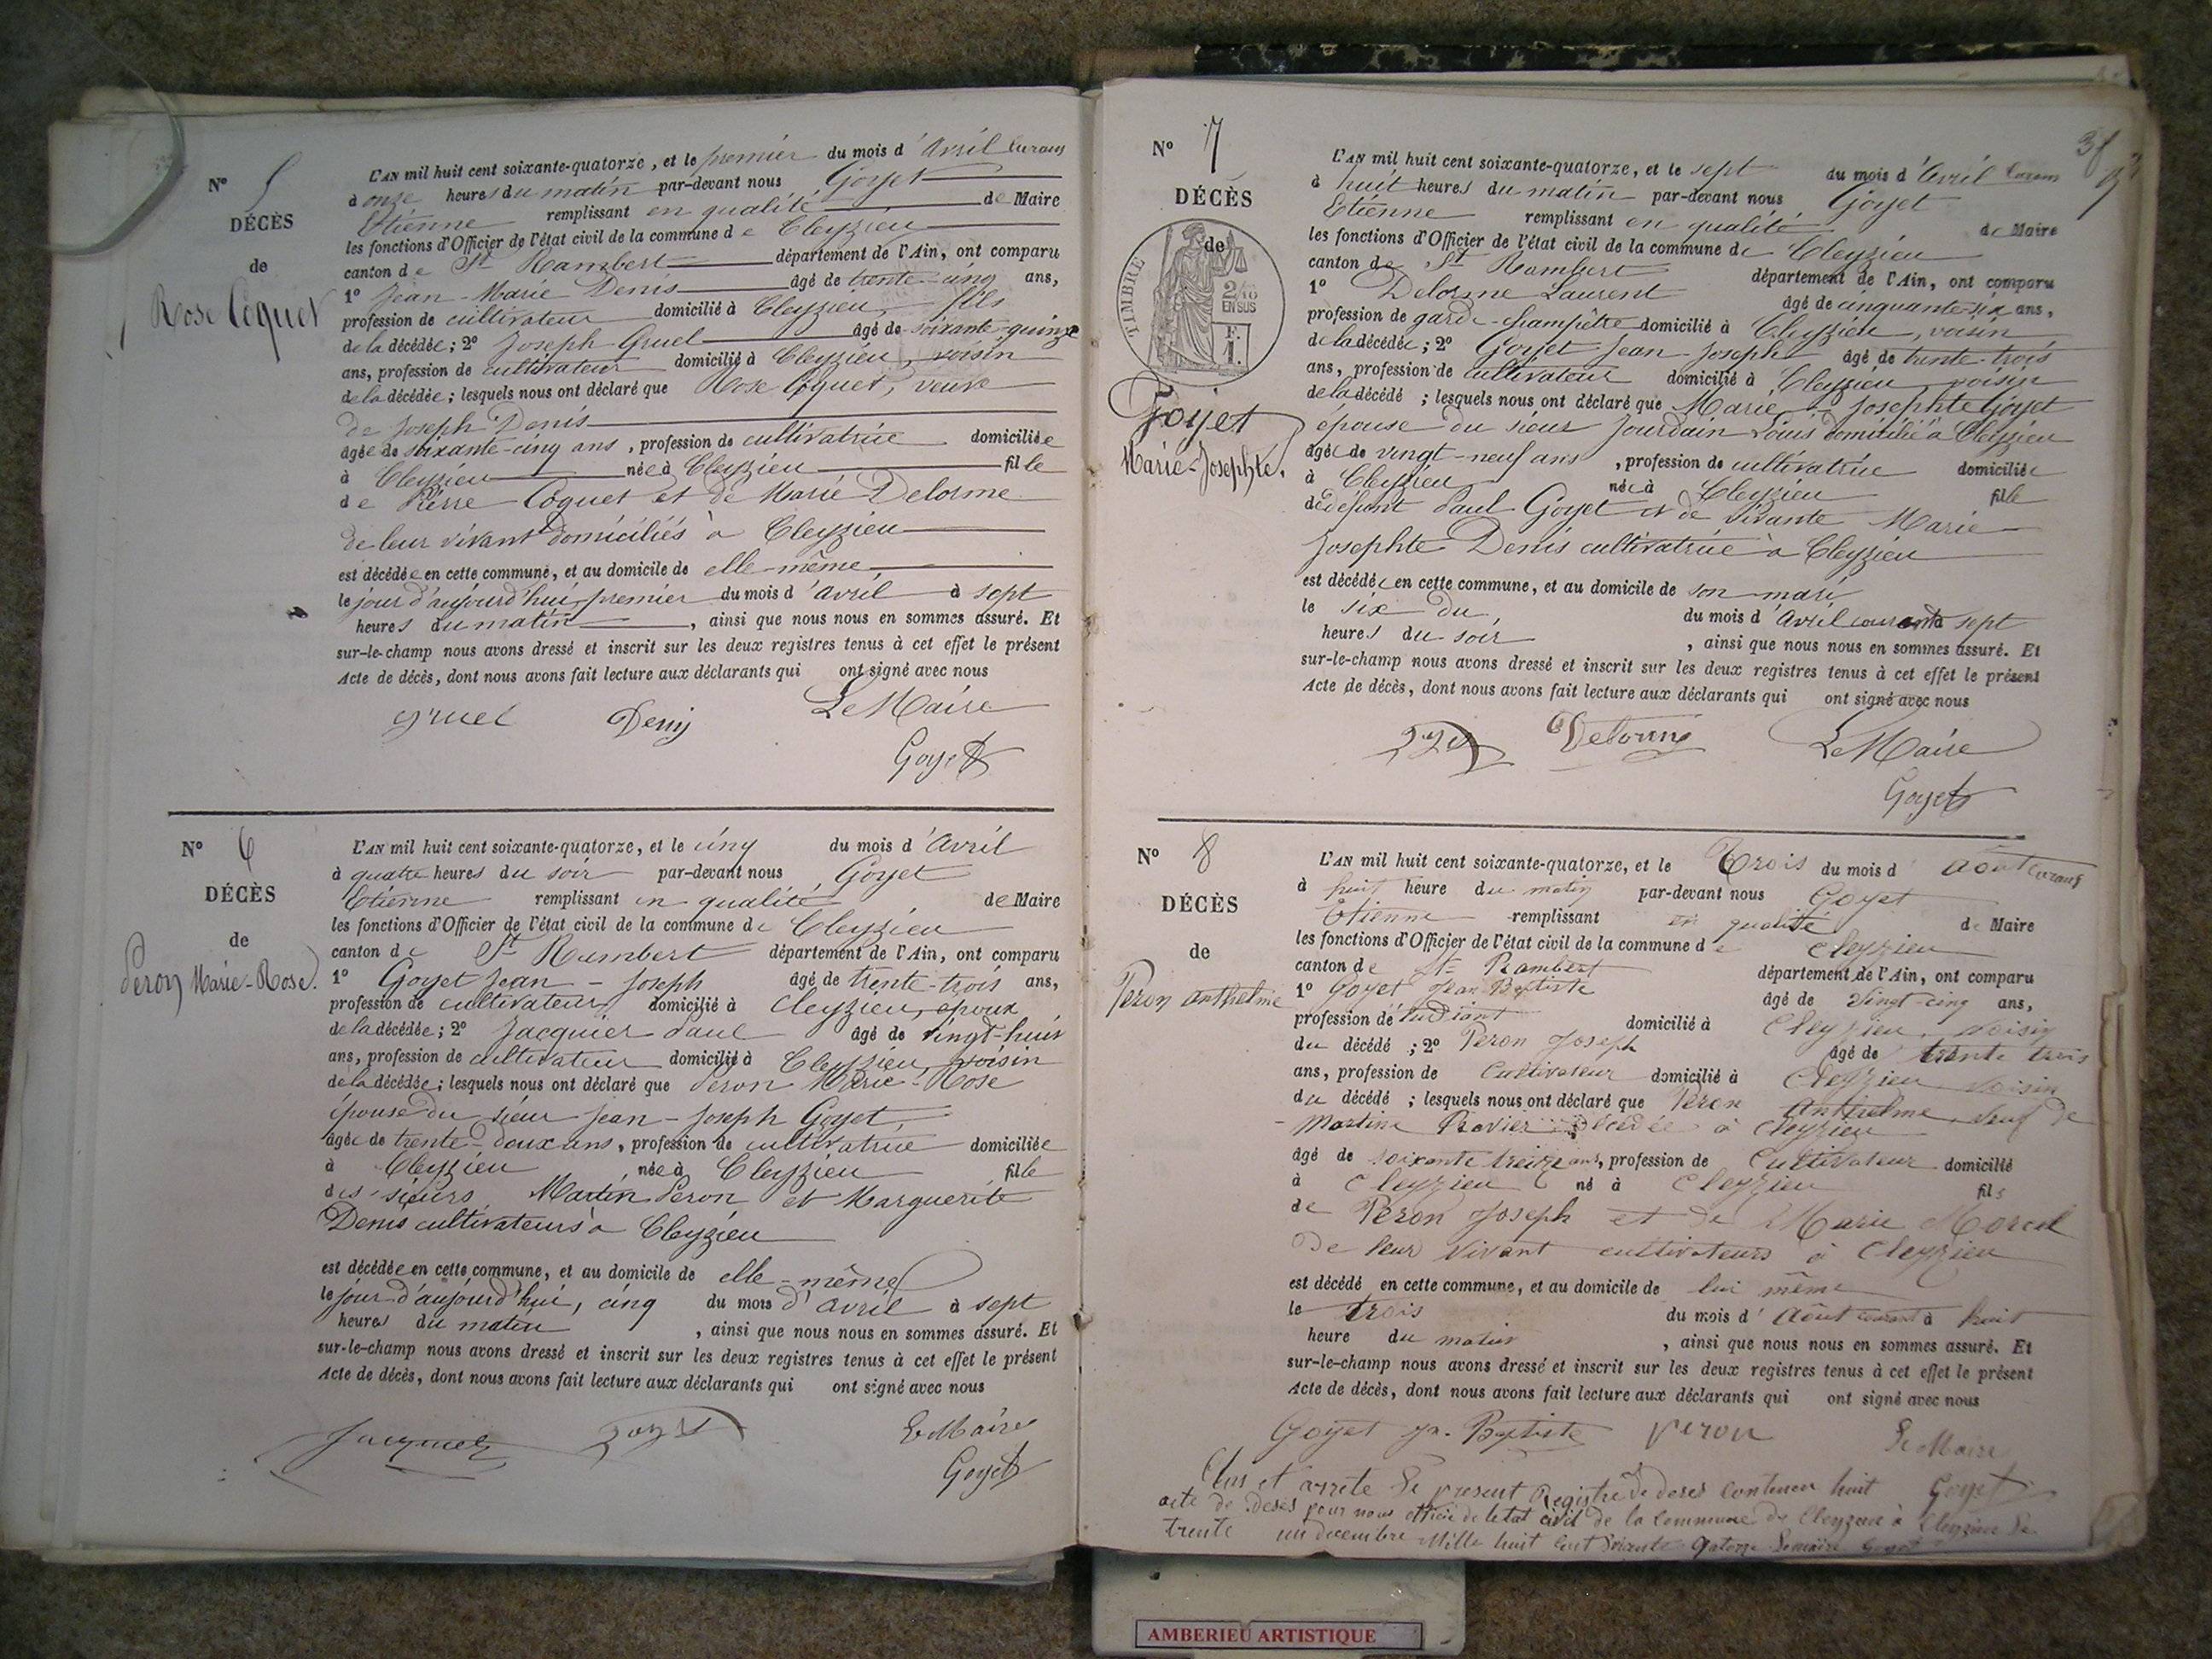 Nº 5
DÉCÈS
de
Rose Coquet
L'AN mil huit cent soixante-quatorze, et le premier du mois d'Avril courant
à onze heures du matin par-devant nous Goyet
Etienne remplissant en qualité de Maire
les fonctions d'Officier de l'état civil de la commune de Cleyzieu
canton de St Rambert département de l'Ain, ont comparu
1º Jean-Marie Denis âgé de trente-cinq ans,
profession de cultivateur domicilié à Cleyzieu, fils
de la décédée; 2º Joseph Gruel âgé de soixante-quinze
ans, profession de cultivateur domicilié à Cleyzieu, voisin
de la décédée; lesquels nous ont déclaré que Rose Coquet, veuve
de Joseph Denis
âgée de soixante-cinq ans, profession de cultivatrice domiciliée
à Cleyzieu née à Cleyzieu fille
de Pierre Coquet et de Marie Delorme
de leur vivant domiciliés à Cleyzieu
est décédée en cette commune, et au domicile de elle-même
le jour d'aujourd'hui premier du mois d'avril à sept
heures du matin, ainsi que nous nous en sommes assuré. Et
sur-le-champ nous avons dressé et inscrit sur les deux registres tenus à cet effet le présent
Acte de décès, dont nous avons fait lecture aux déclarants qui ont signé avec nous
gruel Denis Le Maire
Goyet
Nº 6
DÉCÈS
de
Peron Marie-Rose.
L'AN mil huit cent soixante-quatorze, et le cinq du mois d'Avril
à quatre heures du soir par-devant nous Goyet
Etienne remplissant en qualité de Maire
les fonctions d'Officier de l'état civil de la commune de Cleyzieu
canton de St Rambert département de l'Ain, ont comparu
1º Goyet Jean-Joseph âgé de trente-trois ans,
profession de cultivateur domicilié à Cleyzieu, époux
de la décédée; 2º Jacquier Paul âgé de vingt-huit
ans, profession de cultivateur domicilié à Cleyzieu, voisin
de la décédée; lesquels nous ont déclaré que Peron Marie-Rose
épouse du sieur Jean-Joseph Goyet,
âgée de trente-deux ans, profession de cultivatrice domiciliée
à Cleyzieu née à Cleyzieu fille
des sieurs Martin Peron et Marguerite
Denis cultivateurs à Cleyzieu
est décédée en cette commune, et au domicile de elle-même
le jour d'aujourd'hui, cinq du mois d'avril à sept
heures du matin, ainsi que nous nous en sommes assuré. Et
sur-le-champ nous avons dressé et inscrit sur les deux registres tenus à cet effet le présent
Acte de décès, dont nous avons fait lecture aux déclarants qui ont signé avec nous
Le Maire
Goyet
Nº 7
DÉCÈS
de
TIMBRE
2/10
EN SUS
F.
1.
Goyet
Marie-Josephte.
L'AN mil huit cent soixante-quatorze, et le sept du mois d'Avril courant
à huit heures du matin par-devant nous Goyet
Etienne remplissant en qualité de Maire
les fonctions d'Officier de l'état civil de la commune de Cleyzieu
canton de St Rambert département de l'Ain, ont comparu
1º Delorme Laurent âgé de cinquante-six ans,
profession de garde-champêtre domicilié à Cleyzieu, voisin
de la décédée; 2º Goyet Jean-Joseph âgé de trente-trois
ans, profession de cultivateur domicilié à Cleyzieu, voisin
de la décédé; lesquels nous ont déclaré que Marie-Josephte Goyet
épouse du sieur Jourdain Louis domicilié à Cleyzieu
âgée de vingt-neuf ans, profession de cultivatrice domiciliée
à Cleyzieu née à Cleyzieu fille
de défunt Paul Goyet et de vivante Marie
Josephte Denis cultivatrice à Cleyzieu
est décédée en cette commune, et au domicile de son mari
le six du du mois d'Avril courant à sept
heures du soir, ainsi que nous nous en sommes assuré. Et
sur-le-champ nous avons dressé et inscrit sur les deux registres tenus à cet effet le présent
Acte de décès, dont nous avons fait lecture aux déclarants qui ont signé avec nous
Delorme Le Maire
Goyet
Nº 8
DÉCÈS
de
Peron anthelme
L'AN mil huit cent soixante-quatorze, et le Trois du mois d'Août courant
à huit heure du matin par-devant nous Goyet
Etienne remplissant en qualité de Maire
les fonctions d'Officier de l'état civil de la commune de Cleyzieu
canton de St Rambert département de l'Ain, ont comparu
1º Goyet Jean Baptiste âgé de Vingt-cinq ans,
profession de étudiant domicilié à Cleyzieu, Voisin
du décédé; 2º Peron Joseph âgé de trente trois
ans, profession de Cultivateur domicilié à Cleyzieu Voisin
du décédé; lesquels nous ont déclaré que Peron Anthelme, veuf de
Martine décédée à Cleyzieu
âgé de soixante treize ans, profession de Cultivateur domicilié
à Cleyzieu né à Cleyzieu fils
de Peron Joseph et de Marie Morel
De leur Vivant cultivateurs à Cleyzieu
est décédé en cette commune, et au domicile de lui même
le trois du mois d'Août courant à huit
heure du matin, ainsi que nous nous en sommes assuré. Et
sur-le-champ nous avons dressé et inscrit sur les deux registres tenus à cet effet le présent
Acte de décès, dont nous avons fait lecture aux déclarants qui ont signé avec nous
Goyet Jn. Baptiste Peron Le Maire
Clos et arrete Le present Registre de deses Contenen huit Goyet
acte de deses pour nous officie de letat civil de la Commune de Cleyzieu à Cleyzieu Le
trente un decembre Mille huit Cent Soixante quatorze Le maire Goyet
AMBERIEU ARTISTIQUE